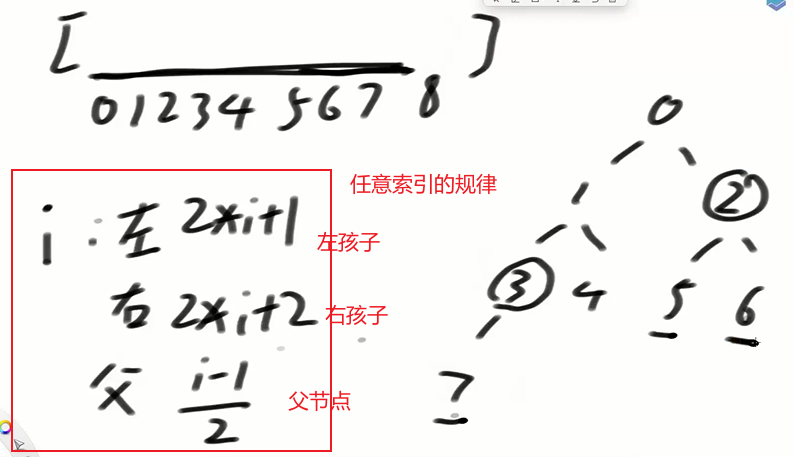 [ ]
0 1 2 3 4 5 6 7 8
任意索引的规律
i 左 2×i+1 左孩子
右 2×i+2 右孩子
父 i-1/2 父节点
0
1 2
3 4 5 6
7